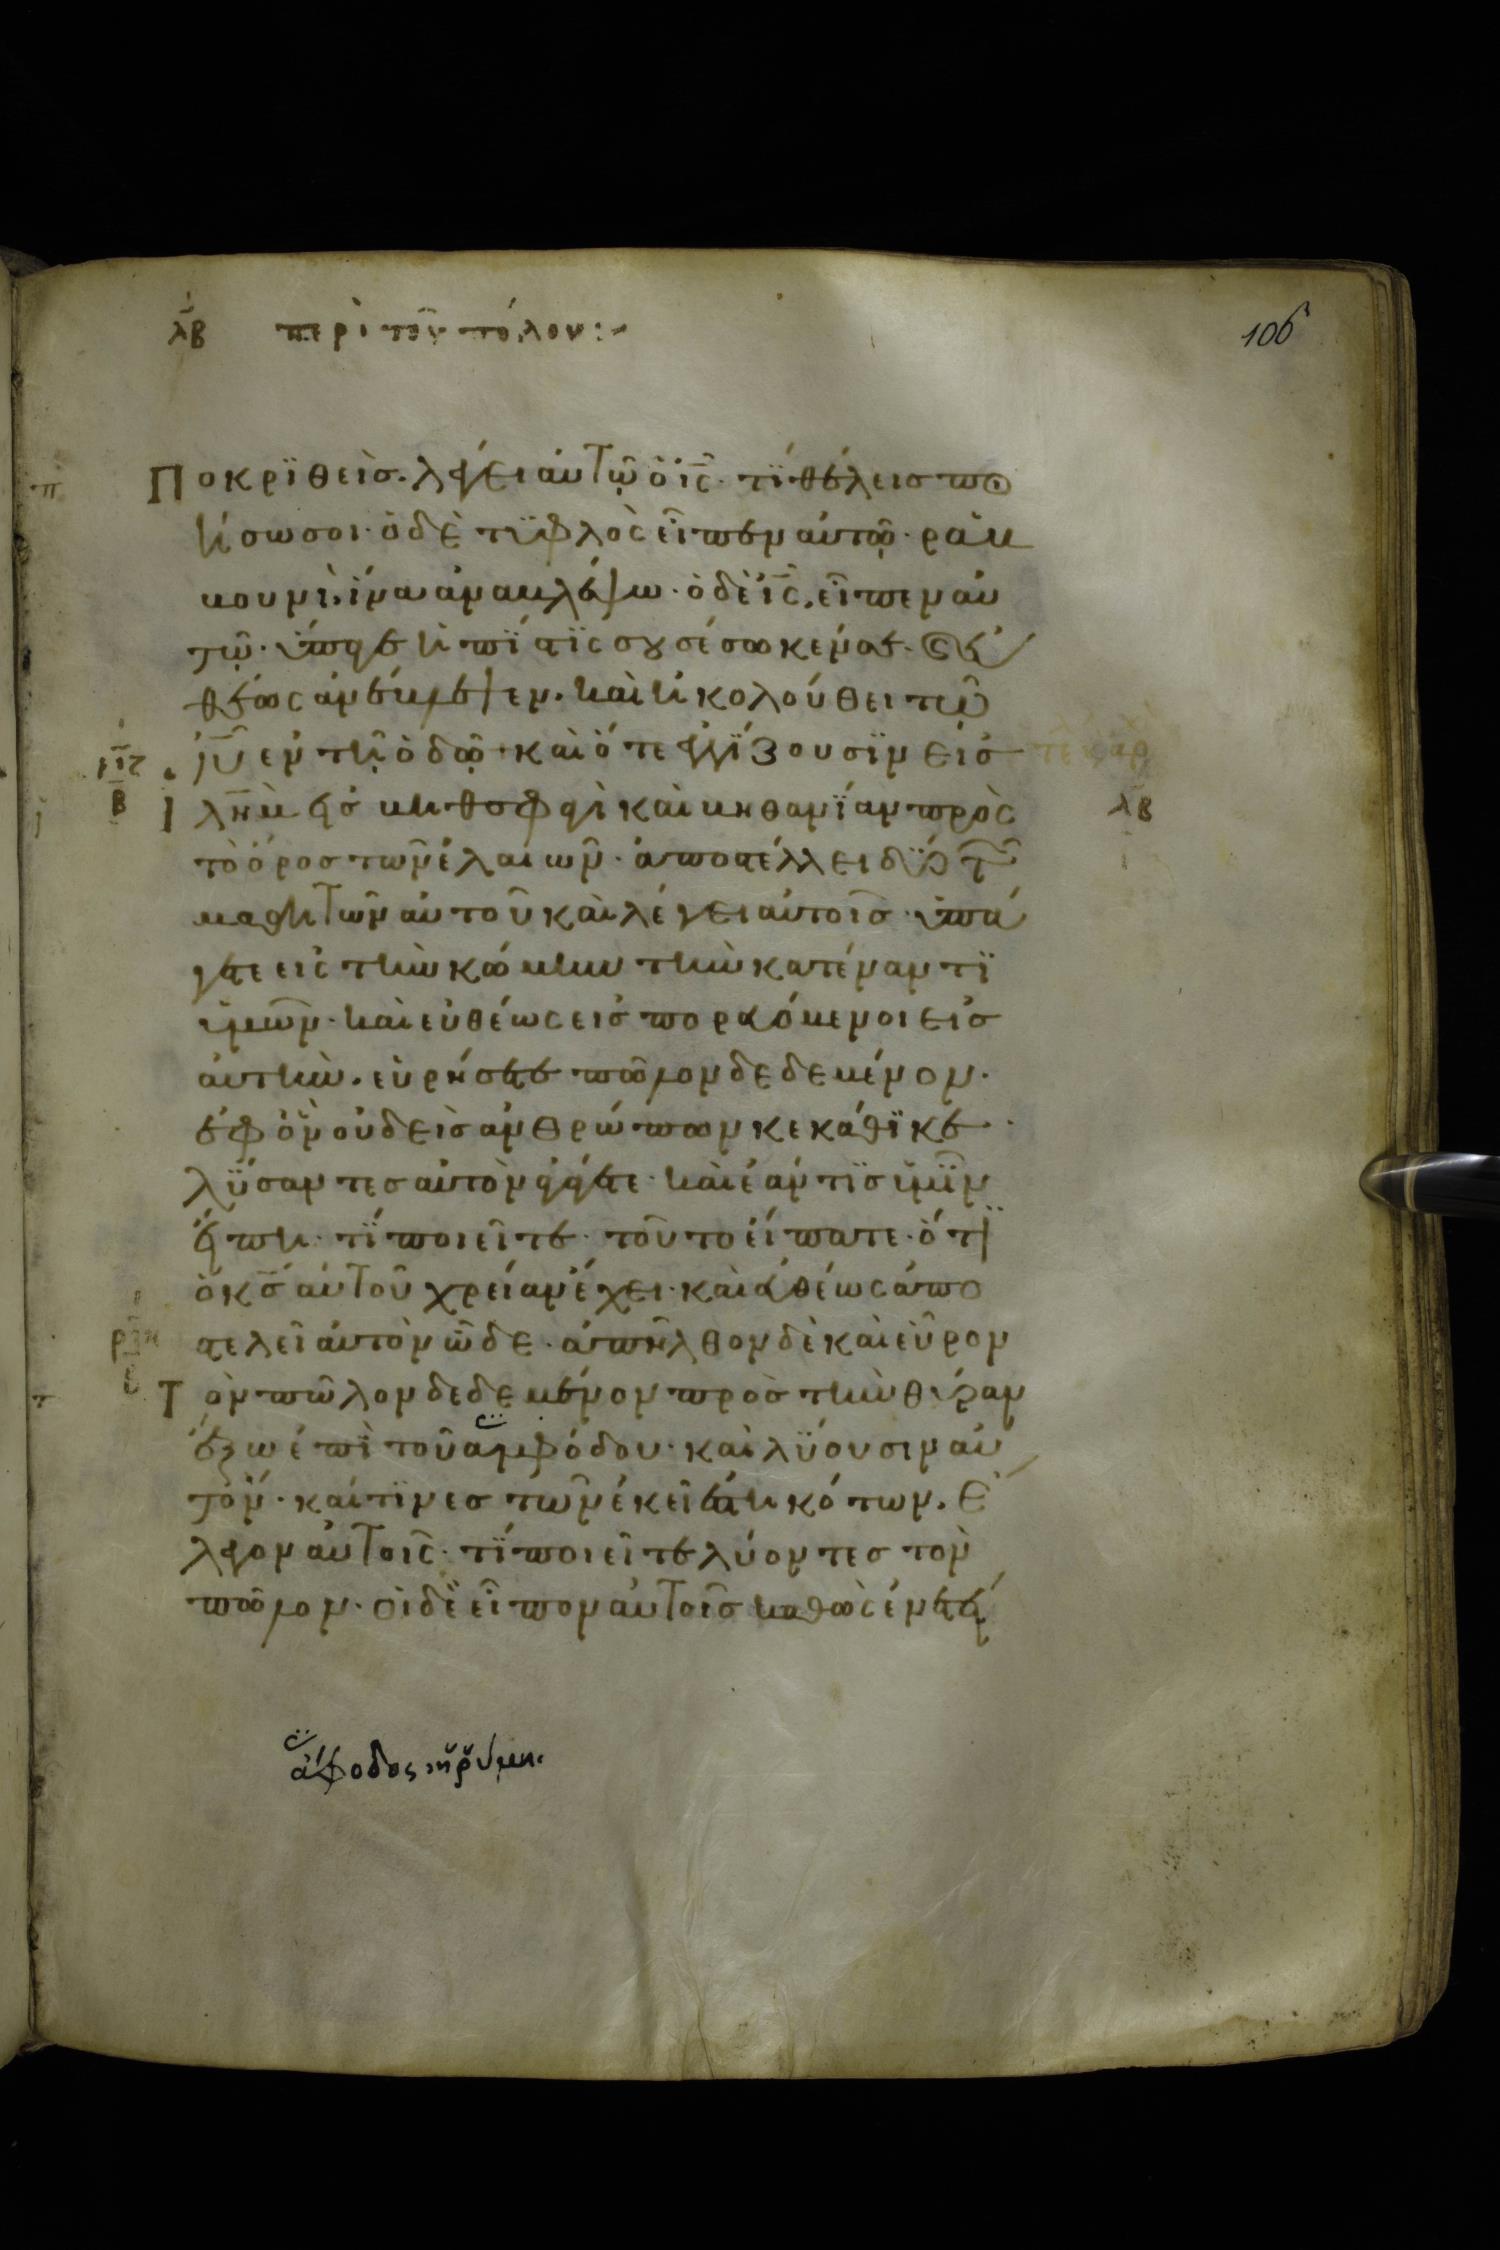 λβ περὶ τοῦ πόλου:~
106
Ποκρϊθεὶσ. λέγει αὐτῶ ὁ ἰς̅. τΐ θέλεισ ποι
ήσω σοι. ὁ δὲ τϋφλὸς εἶπεν αὐτῶ. ραβ
βουνὶ. ἵνα ἀναβλέψω. ὁ δὲ ἰς̅. εἶπεν αὐ
τῶ. ὕπαγε ἡ πΐστϊς σου σέσωκέν σε. καὶ εὐ
θέως ἀνέβλεψεν. καὶ ἠκολούθει τῶ
ιυ̅ ἐν τῆ ὁδῶ. καὶ ὅτε ἐγγΐζουσϊν εἰσ
ριζ
β
λβ
Ιλη̅μ εἰσ βηθσφαγὶ καὶ βηθανΐαν πρὸς
τὸ ὄροσ τῶν ἐλαιῶν. ἀποστέλλει δύο τῶν
μαθητῶν αὐτοῦ καὶ λέγει αὐτοῖσ. ὑπά
γετε εἰς τὴν κώμην τὴν κατέναντϊ
ὑμῶν. καὶ εὐθέως εἰσπορευόμενοι εἰσ
αὐτὴν. εὑρήσετε πῶλον δεδεμένον.
ἐφ ὃν οὐδεὶσ ἀνθρώπων κεκάθϊκε.
λΰσαντεσ αὐτὸν ἀγάγετε. καὶ ἐάν τϊσ ὑμῖν
εἴπη. τΐ ποιεῖτε. τοῦτο εἴπατε. ὅτϊ
ὁ κσ̅ αὐτοῦ χρείαν ἔχει. καὶ εὐθέως ἀπο
στελεῖ αὐτὸν ὧδε. ἀπῆλθον δὲ καὶ εὗρον
ριη
Τὸν πῶλον δεδεμένον πρὸσ τὴν θύραν
ἔξω ἐπὶ τοῦ ἀμφόδου. καὶ λΰουσιν αὐ
τόν. καί τϊνεσ τῶν ἐκεῖ ἑστηκότων. ἔ
λεγον αὐτοῖς. τΐ ποιεῖτε λύοντεσ τὸν
πῶλον. οἱ δὲ εἶπον αὐτοῖσ καθὼς ἐνετεί
ἄφοδος, ἡ ῥύμη.